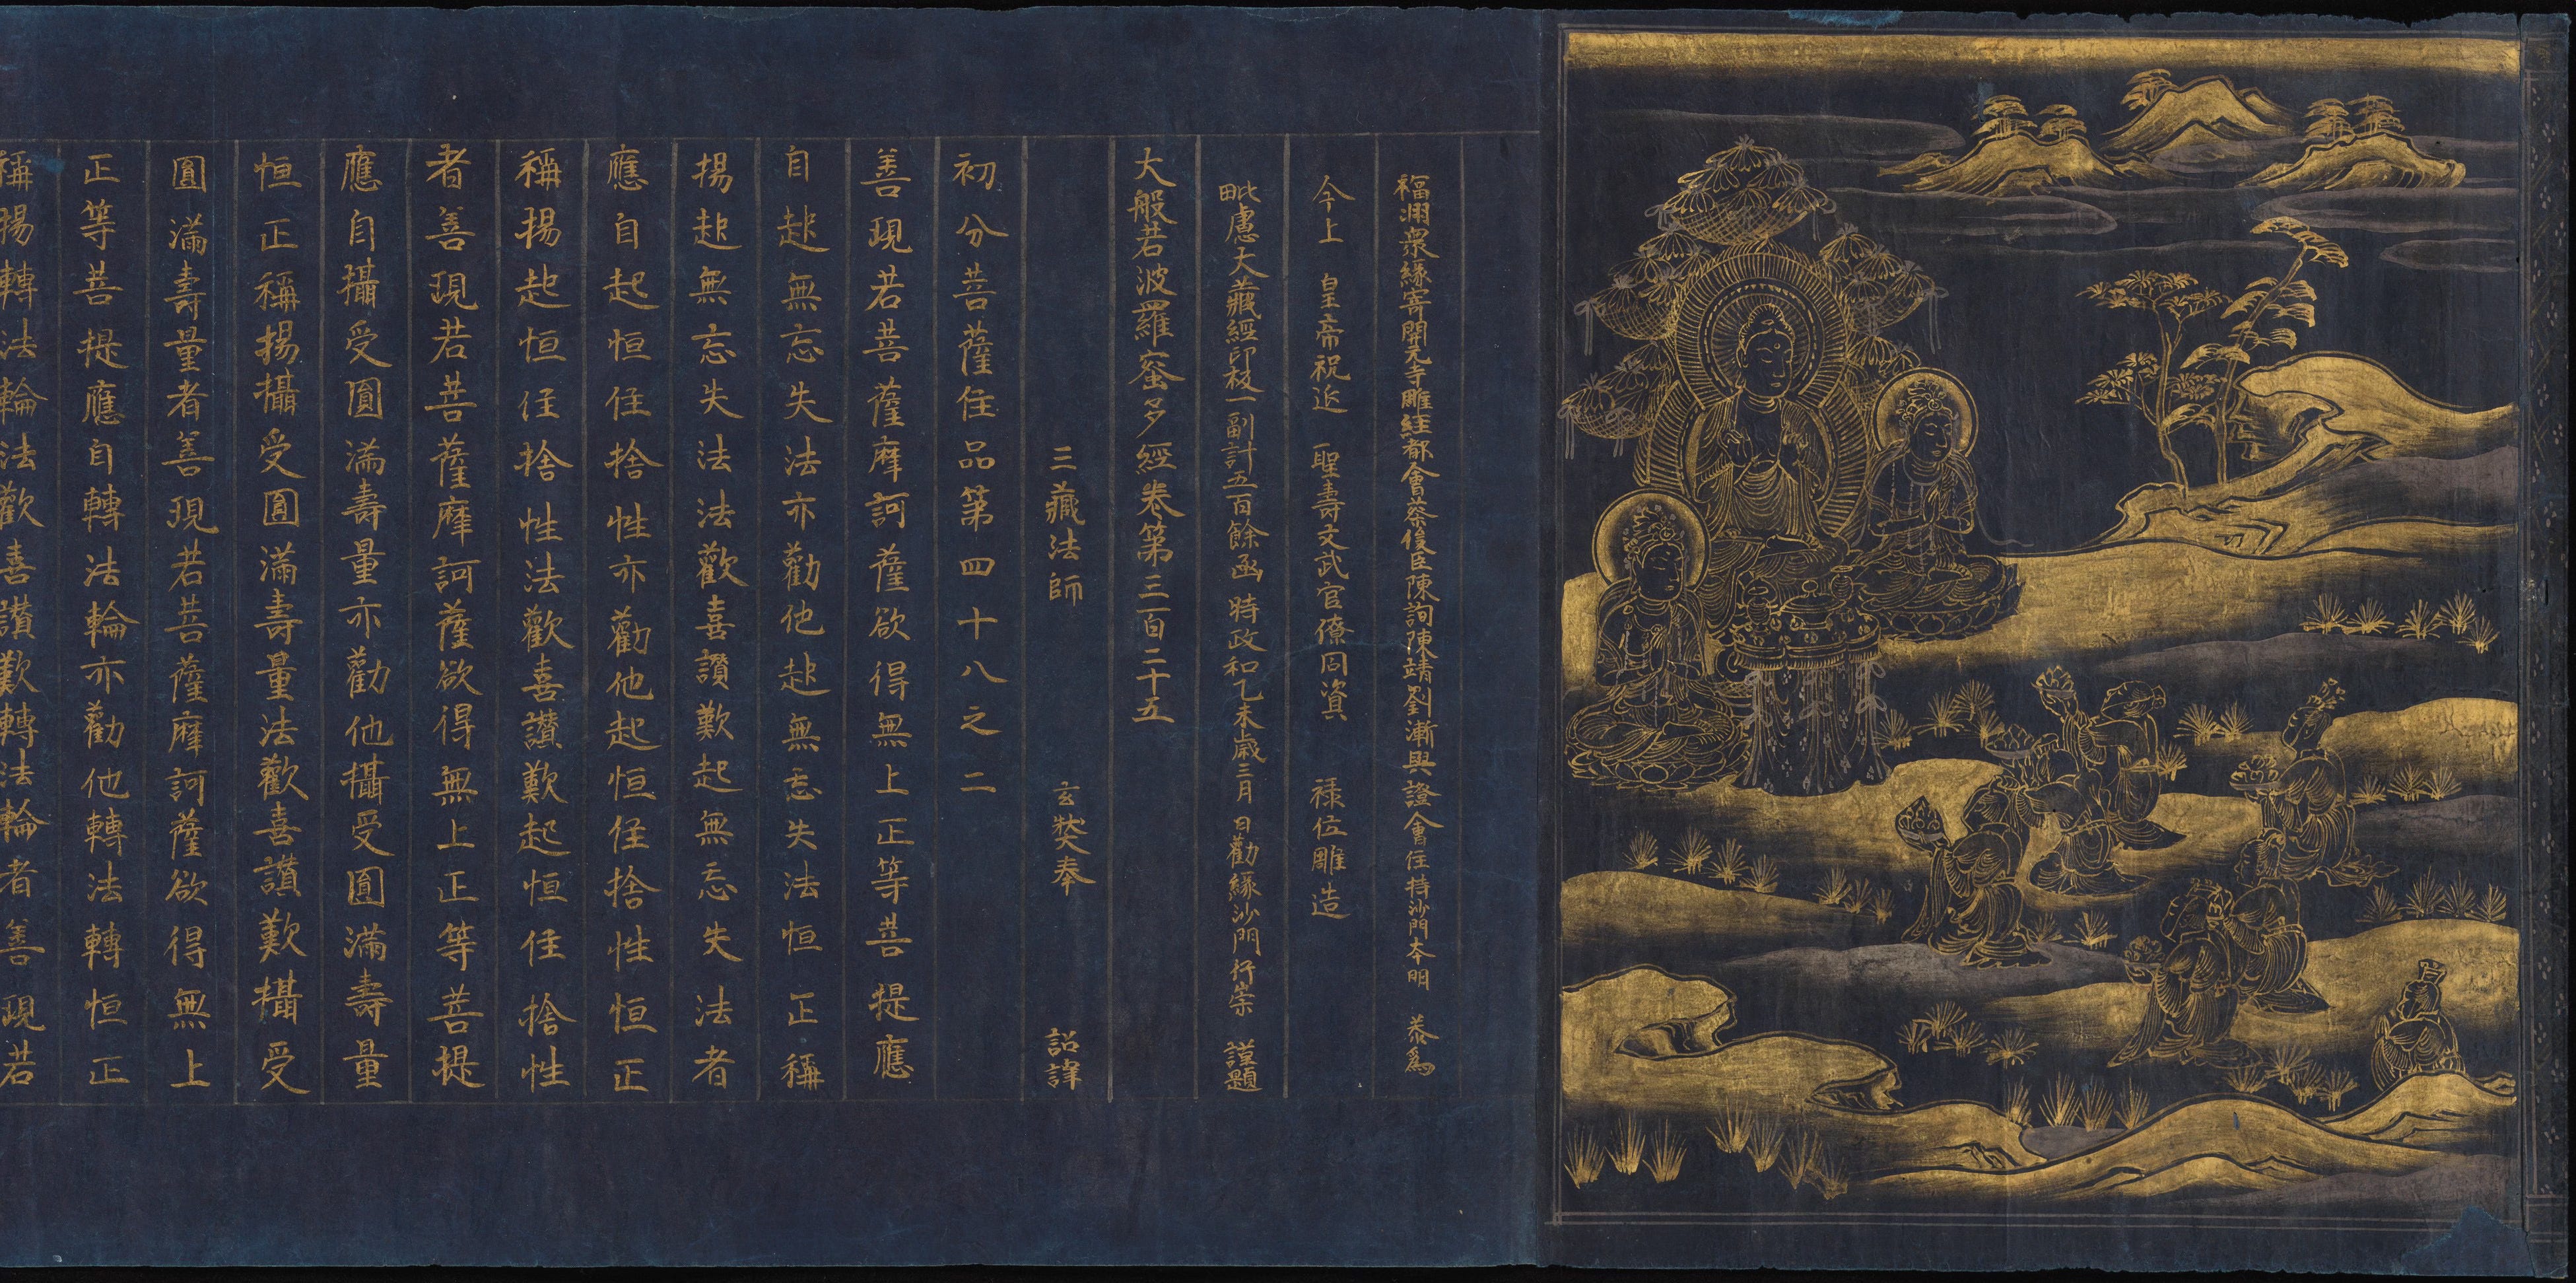 福州衆緣寄開元寺雕經都會蔡俊臣陳詢陳靖劉漸與證會住持沙門本明 恭爲
今上 皇帝祝延 聖壽文武官僚同資 禄位雕造
毗盧大藏經印板一副計五百餘函時政和乙未歳三月 日勸緣沙門行崇 謹題
大般若波羅蜜多經卷第三百二十五
三藏法師 玄奘奉 詔譯
初分菩薩住品第四十八之二
善現若菩薩摩訶薩欲得無上正等菩提應
自起無忘失法亦勸他起無忘失法恒正稱
揚起無忘失法法歡喜讃歎起無忘失法者
應自起恒住捨性亦勸他起恒住捨性恒正
稱揚起恒住捨性法歡喜讃歎起恒住捨性
者善現若菩薩摩訶薩欲得無上正等菩提
應自攝受圓滿壽量亦勸他攝受圓滿壽量
恒正稱揚攝受圓滿壽量法歡喜讃歎攝受
圓滿壽量者善現若菩薩摩訶薩欲得無上
正等菩提應自轉法輪亦勸他轉法輪恒正
稱揚轉法輪法歡喜讃歎轉法輪者善現若